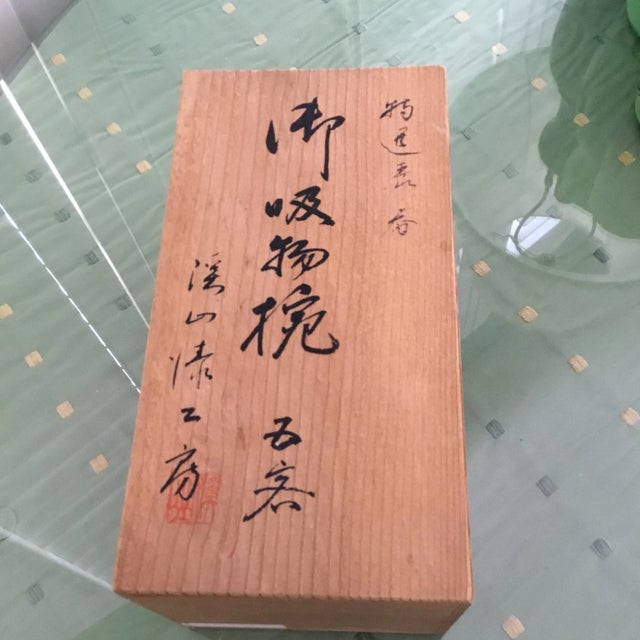 特選
御吸物椀 五客
渓山漆工房